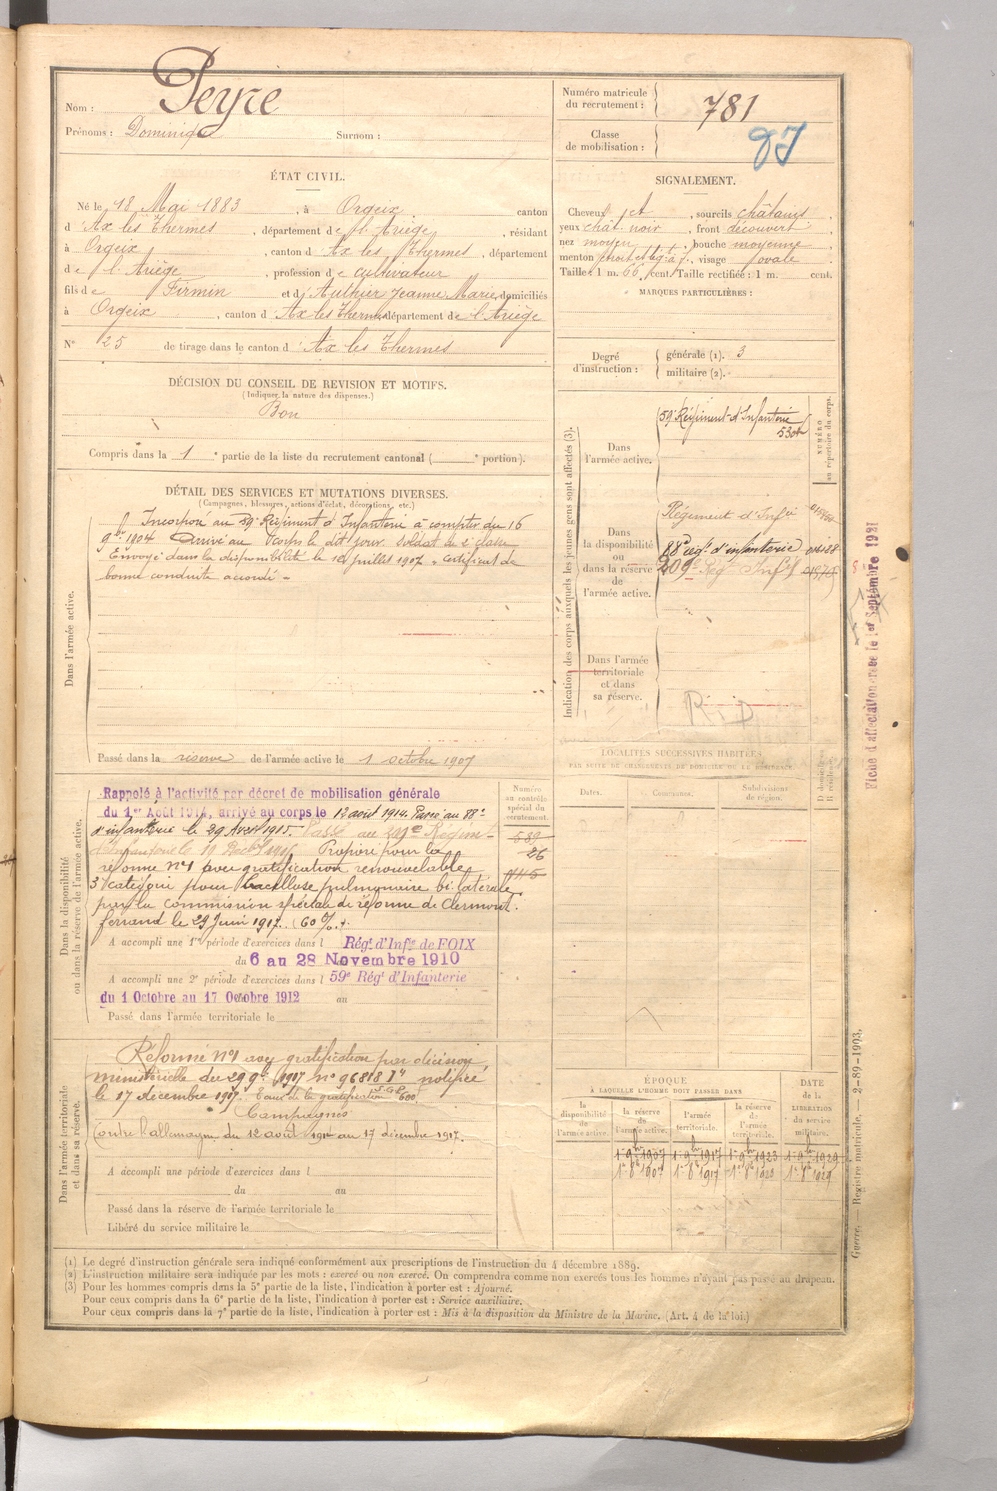 Nom : Peyre
Prénoms : Dominique Surnom :
ÉTAT CIVIL.
Né le 18 Mai 1883, à Orgeix canton
d'Ax les Thermes, département de l'Ariège, résidant
à Orgeix, canton d'Ax les Thermes, département
de l'Ariège, profession de cultivateur
fils de Firmin et d'Authier Jeanne Marie, domiciliés
à Orgeix, canton d'Ax les Thermes département de l'Ariège
N° 25 de tirage dans le canton d'Ax les Thermes
DÉCISION DU CONSEIL DE REVISION ET MOTIFS.
(Indiquer la nature des dispenses.)
Bon
Compris dans la 1e partie de la liste du recrutement cantonal ( e portion).
Numéro matricule du recrutement : 781
Classe de mobilisation :
SIGNALEMENT.
Cheveux et, sourcils châtains,
yeux chât. noir, front découvert,
nez moyen, bouche moyenne
menton, visage ovale
Taille : 1 m. 66 cent. Taille rectifiée : 1 m. cent.
MARQUES PARTICULIÈRES :
Degré d'instruction : générale (1). 3
militaire (2).
DÉTAIL DES SERVICES ET MUTATIONS DIVERSES.
(Campagnes, blessures, actions d'éclat, décorations, etc.)
Dans l'armée active.
Incorporé au 59e Régiment d'Infanterie à compter du 16
9bre 1904 Arrivé au corps le dit jour. Soldat de 2e classe
Envoyé dans la disponibilité le 12 juillet 1907 - certificat de
bonne conduite accordé -
Passé dans la réserve de l'armée active le 1 octobre 1907
Indication des corps auxquels les jeunes gens sont affectés (3).
NUMÉRO au répertoire du corps.
Dans l'armée active.
59e Régiment d'Infanterie
Dans la disponibilité ou dans la réserve de l'armée active.
Régiment d'Infie
88e régt d'infanterie
209e Rég Infie
Dans l'armée territoriale et dans sa réserve.
Fiche d'affectation le 1er Septembre 1921
LOCALITÉS SUCCESSIVES HABITÉES
PAR SUITE DE CHANGEMENTS DE DOMICILE OU DE RÉSIDENCE.
Dates. Communes. Subdivisions de région. D domicile R résidence.
Dans la disponibilité ou dans la réserve de l'armée active.
Numéro au contrôle spécial du recrutement.
589
26
Rappelé à l'activité par décret de mobilisation générale
du 1er Août 1914, arrivé au corps le 12 août 1914. Passé au 88e
d'infanterie le 29 Avril 1915. Passé au 209e Régiment
d'Infanterie le 19 Proposé pour la
réforme n°1 avec gratification renouvelable
3e catégorie pour bacillose pulmonaire bi latérale
par la commission spéciale de réforme de Clermont
ferrand le 29 Juin 1917. (60 %)
A accompli une 1re période d'exercices dans l Régt d'Infie de FOIX
du 6 au 28 Novembre 1910
A accompli une 2e période d'exercices dans l 59e Régt d'Infanterie
du 1 Octobre au 17 Octobre 1912 au
Passé dans l'armée territoriale le
Dans l'armée territoriale et dans sa réserve.
Réformé n°1 avec gratification par décision
ministérielle du 29 9bre 1917 n° 96818 notifiée
le 17 décembre 1917. Taux de la gratification 600
Campagnes
Contre l'allemagne du 12 août 1914 au 17 décembre 1917.
A accompli une période d'exercices dans l
du au
Passé dans la réserve de l'armée territoriale le
Libéré du service militaire le
ÉPOQUE
À LAQUELLE L'HOMME DOIT PASSER DANS
la disponibilité de l'armée active. la réserve de l'armée active. l'armée territoriale. la réserve de l'armée territoriale. DATE DE LA LIBÉRATION du service militaire.
1er 9bre 1907 1er 9bre 1917 1er 9bre 1923 1er 9bre 1929
1er 8bre 1907 1er 8bre 1917 1er 8bre 1923 1er 8bre 1929
(1) Le degré d'instruction générale sera indiqué conformément aux prescriptions de l'instruction du 4 décembre 1889.
(2) L'instruction militaire sera indiquée par les mots : exercé ou non exercé. On comprendra comme non exercés tous les hommes n'ayant pas passé au drapeau.
(3) Pour les hommes compris dans la 5e partie de la liste, l'indication à porter est : Ajourné.
Pour ceux compris dans la 6e partie de la liste, l'indication à porter est : Service auxiliaire.
Pour ceux compris dans la 7e partie de la liste, l'indication à porter est : Mis à la disposition du Ministre de la Marine. (Art. 4 de la loi.)
Guerre. — Registre matricule. — 2-89-1903.